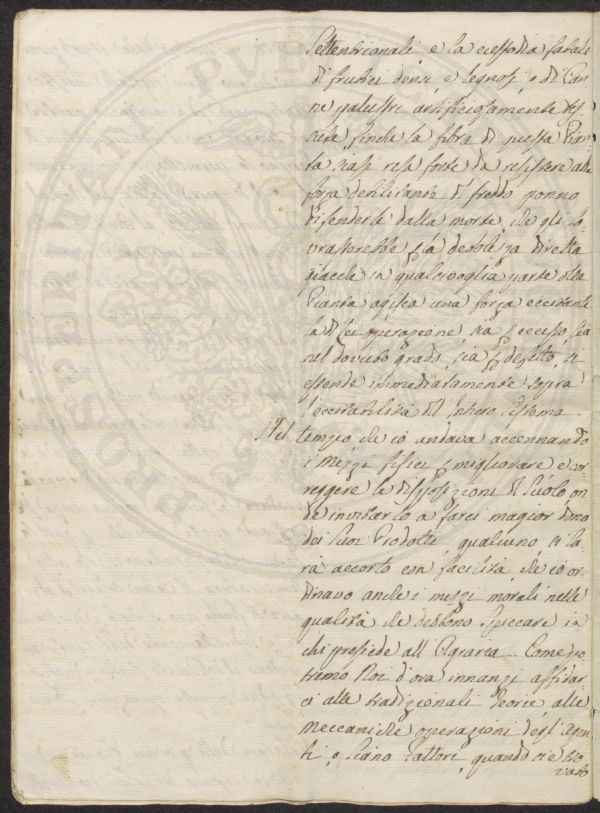 Settentrionali, e la custodia fatale
di frutici densi, e legnosi, o di Can=
ne palustri artificiosamente tes=
sute, finchè la fibra di questa Pian=
ta siasi resa forte da resistere alla
forza debilitante del freddo ponno
difenderla dalla morte che gli so=
vrasterebbe p la debolezza diretta
giacchè in qualsivoglia parte della
Pianta agisca una forza eccitante
la di lei operazione, sia p eccesso, sia
nel dovuto grado, sia p difetto, si
estende immediatamente sopra
l'eccitabilità del Intero Sistema.
Nel tempo che io andava accennando
i Mezzi fisici p migliorare e cor=
reggere le disposizioni del Suolo on
de invitarlo a farci magior dono
dei Suoi Prodotti, qualcuno si sa=
rà accorto con facilità che io or=
dinavo anche i mezzi morali nelle
qualità che debbono spiccare in
chi presiede all'Agraria. Come po
tremo Noi d'ora innanzi affidar
ci alle tradizionali Teorie, alle
Meccaniche operazioni degl'Agen=
ti, o siano Fattori, quando si è tro
vato
PVB
PROSPERITAT